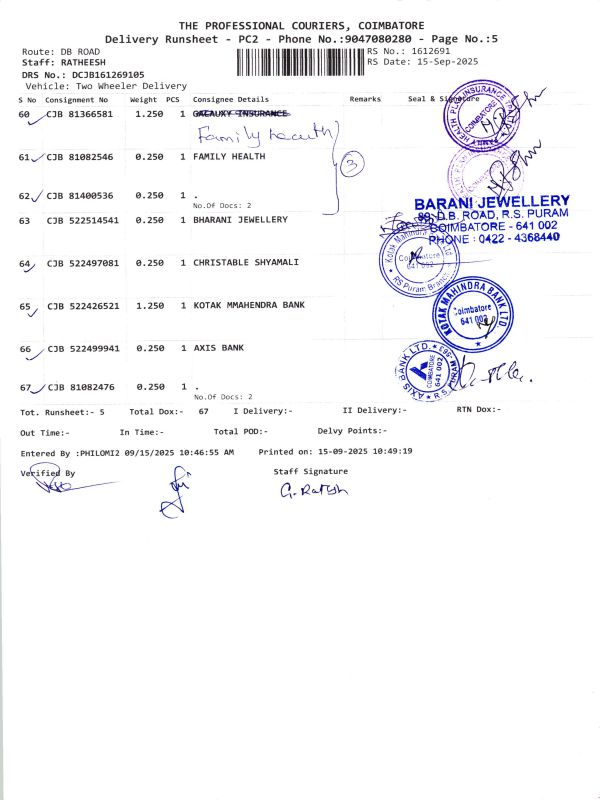 THE PROFESSIONAL COURIERS, COIMBATORE
Delivery Runsheet - PC2 - Phone No.:9047080280 - Page No.:5
Route: DB ROAD RS No.: 1612691
Staff: RATHEESH RS Date: 15-Sep-2025
DRS No.: DCJB161269105
Vehicle: Two Wheeler Delivery
S No Consignment No Weight PCS Consignee Details Remarks Seal & Signature
60 CJB 81366581 1.250 1 GALAUXY INSURANCE
Family health
61 CJB 81082546 0.250 1 FAMILY HEALTH
3
62 CJB 81400536 0.250 1 .
No.Of Docs: 2
BARANI JEWELLERY
89, D.B. ROAD, R.S. PURAM
COIMBATORE - 641 002
PHONE : 0422 - 4368440
63 CJB 522514541 0.250 1 BHARANI JEWELLERY
64 CJB 522497081 0.250 1 CHRISTABLE SHYAMALI
Kotak Mahindra Bank Ltd
Coimbatore
641 002
RS Puram Branch
65 CJB 522426521 1.250 1 KOTAK MMAHENDRA BANK
KOTAK MAHINDRA BANK LTD
Coimbatore
641 002
66 CJB 522499941 0.250 1 AXIS BANK
AXIS BANK LTD.
COIMBATORE
641 002
R S PURAM
67 CJB 81082476 0.250 1 .
No.Of Docs: 2
Tot. Runsheet:- 5 Total Dox:- 67 I Delivery:- II Delivery:- RTN Dox:-
Out Time:- In Time:- Total POD:- Delvy Points:-
Entered By :PHILOMI2 09/15/2025 10:46:55 AM Printed on: 15-09-2025 10:49:19
Verified By Staff Signature
G. Ratish